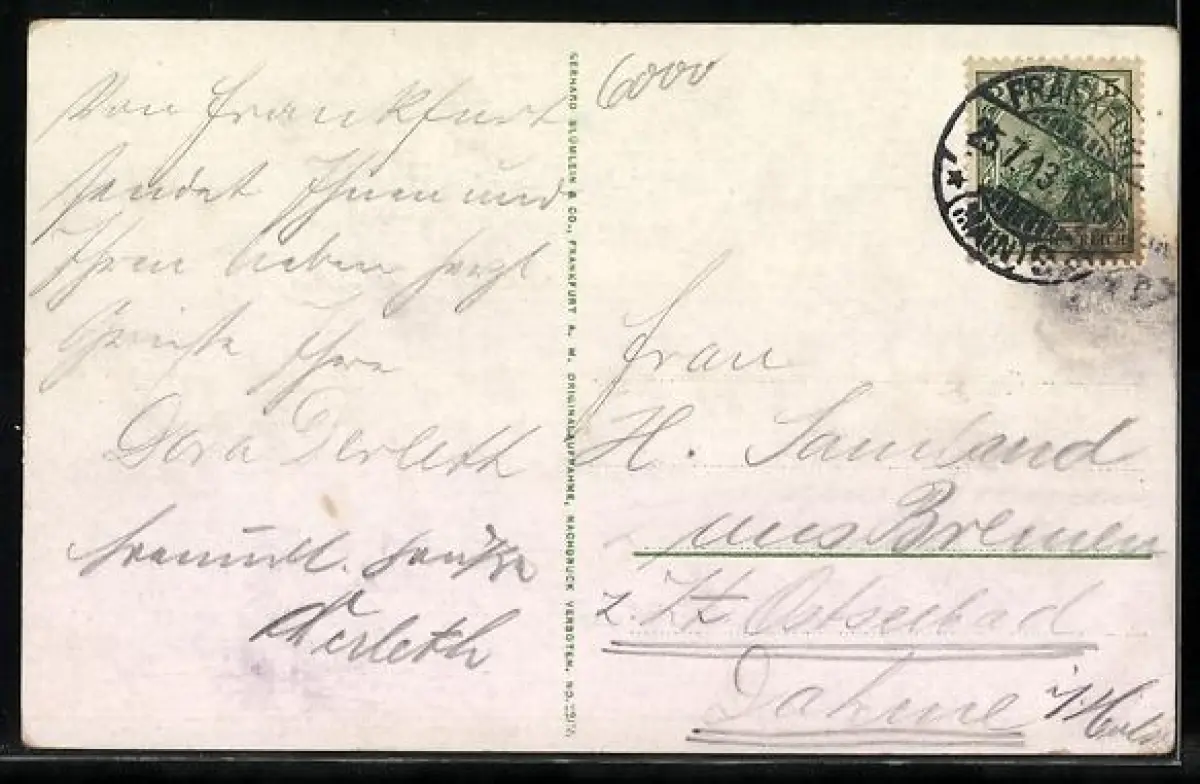 Von Frankfurt
sendet Ihnen und
Ihren lieben herzl.
Grüße Ihre
Dora Derleth
freundl. Grüße
Derleth
GERHARD BLÜMLEIN & CO., FRANKFURT A. M. ORIGINALAUFNAHME, NACHDRUCK VERBOTEN. NO.
6000
5
FRANKFURT
7.13
(MAIN)
REICH
Frau
H. Samland
aus Bremen
z. Zt. Ostseebad
Dahme i/